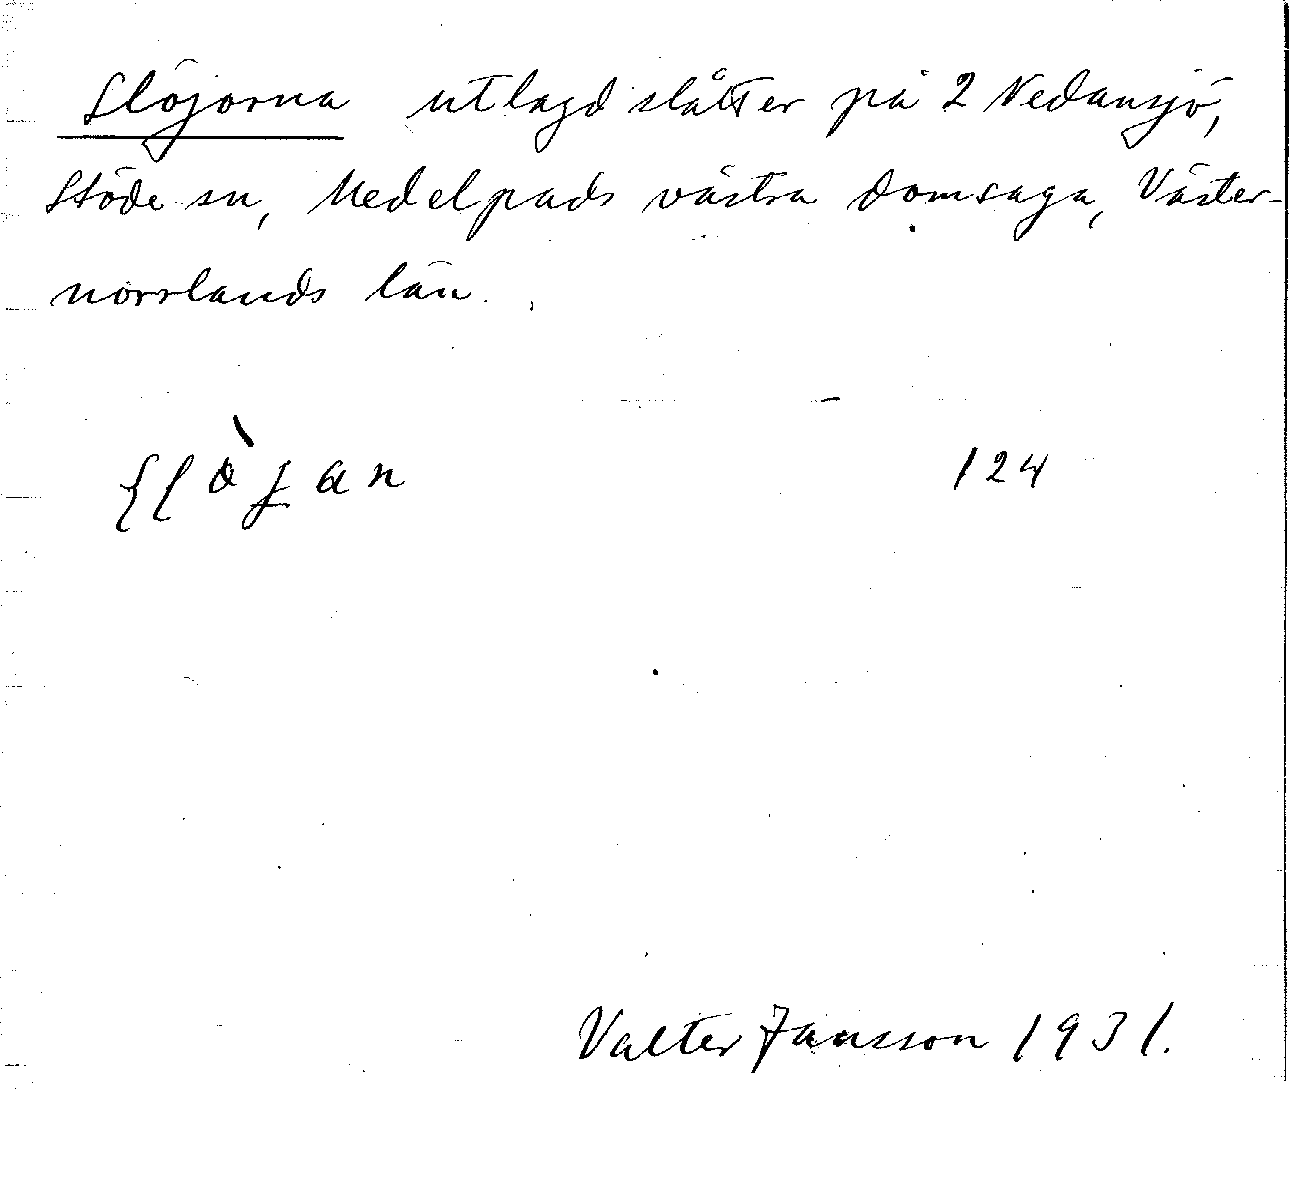 Slöjorna utlagd slåtter på 2 Nedansjö,
Stöde sn, Medelpads västra domsaga, Väster-
norrlands län.
124
Valter Jansson 1931.